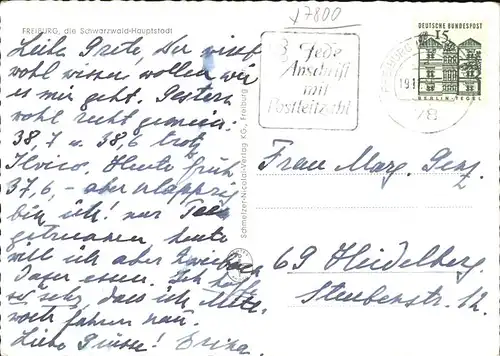 7800
FREIBURG, die Schwarzwald-Hauptstadt
Liebe Grete, Du wirst
wohl wissen wollen wie
es mir geht. Gestern
wohl recht gemein:
38,7 u. 38,6 trotz
Heute früh
37,6, - aber klapprig
bin ich! nur Tee
getrunken, heute
will ich aber Zwieback
dazu essen. Ich hoffe
so sehr, dass ich Mitt-
woch fahren kann.
Liebe Grüsse! Erika.
Schmelzer-Nicolai-Verlag KG., Freiburg
Jede
Anschrift
mit
Postleitzahl
DEUTSCHE BUNDESPOST
15
BERLIN-TEGEL
FREIBURG
78
Frau Marg.
69 Heidelberg
Steubenstr. 12.